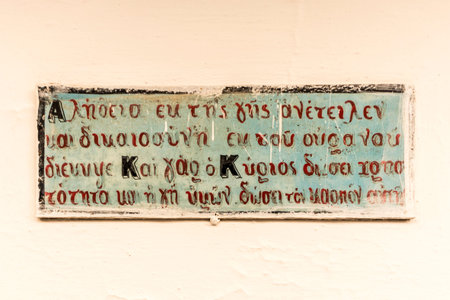 Αλήθεια εκ της γης ανέτειλεν
και δικαιοσύνη εκ του ουρανού
διέκυψε Και γαρ ο Κύριος δώσει χρησ
τότητα και η γη υμών δώσει τον καρπόν αυτης